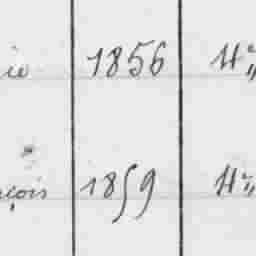 ie 1856 H
çois 1859 H